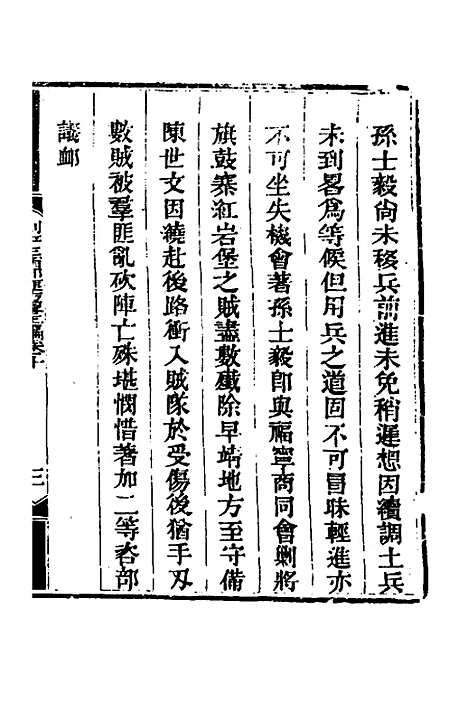 孫士毅尙未移兵前進未免稍遲想因續調土兵
未到畧爲等候但用兵之道固不可冒昧輕進亦
不可坐失機會著孫士毅卽與福寧商同會剿將
旗鼓寨紅岩堡之賊盡數殲除早靖地方至守備
陳世文因繞赴後路衝入賊隊於受傷後猶手刃
數賊被羣匪亂砍陣亡殊堪憫惜著加二等咨部
議䘏